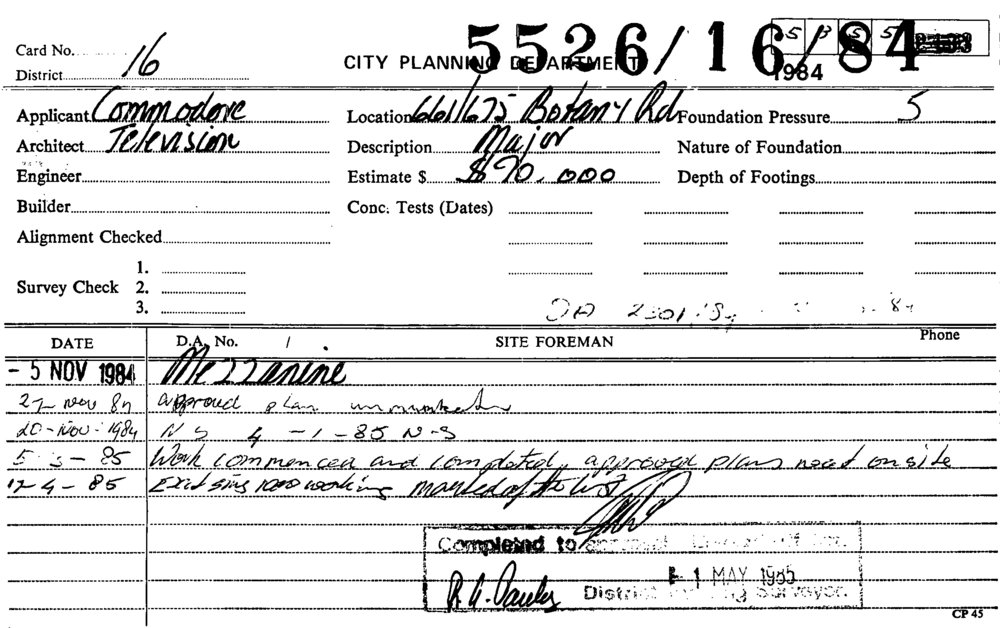 Card No. 16
District
CITY PLANNING DEPARTMENT
5526/16/84
5 3 5 5
1984
Applicant Commodore
Location 661/675 Botany Rd
Foundation Pressure 5
Architect Television
Description Major
Nature of Foundation
Engineer
Estimate $ $90,000
Depth of Footings
Builder
Conc. Tests (Dates)
Alignment Checked
Survey Check 1.
2.
3.
DA 2301/84
DATE D.A. No. / SITE FOREMAN Phone
- 5 NOV 1984 Mezzanine
Nov 84 approved plan
20-Nov-1984 N S 4 -1-85 N-S
5 3-85 Work commenced and completed, approved plans not on site
12-4-85 marked of the list
Completed to
- 1 MAY 1985
District Surveyor.
CP 45